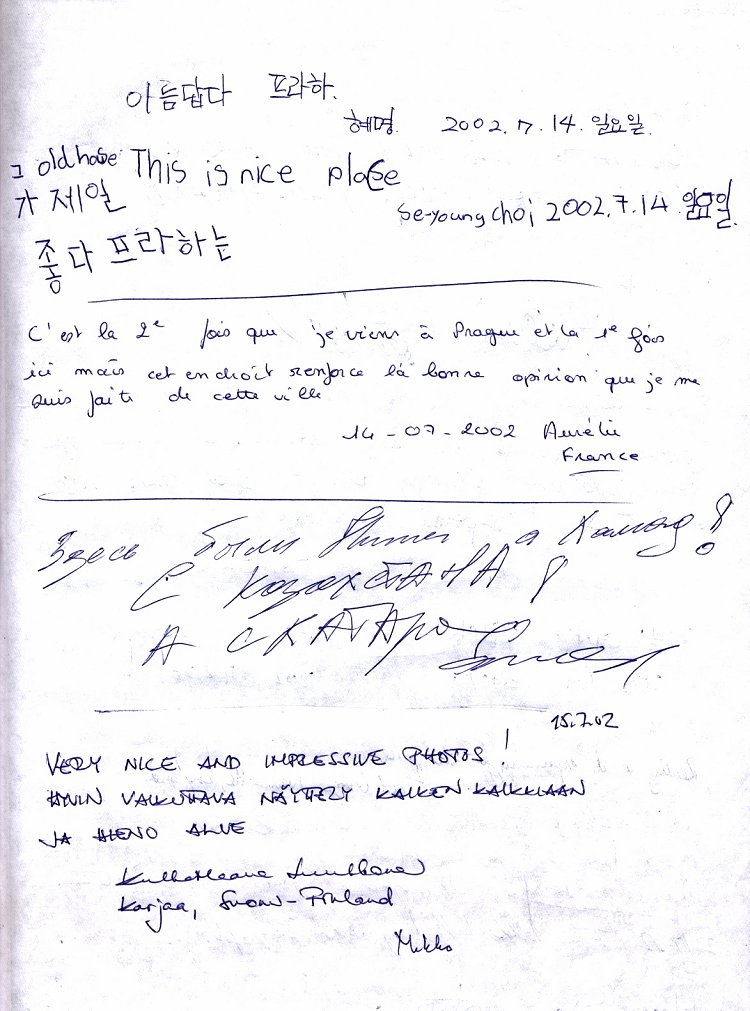 아름답다 프라하.
혜명. 2002. 7. 14. 일요일.
그 old hose This is nice place
가 제일
se-young choi 2002.7.14 일요일.
좋다 프라하는
C'est la 2e fois que je viens à Prague et la 1e fois
ici mais cet endroit renforce la bonne opinion que je me
suis faite de cette ville
14-07-2002 Aurélie
France
Здесь были а Хамад!
С Казахстана!
А с Катара
15.7.02
VERY NICE AND IMPRESSIVE PHOTOS!
HYVIN VAIKUTTAVA NÄYTTELY KAIKEN KAIKKIAAN
JA HIENO ALUE
Karjaa, Suomi-Finland
Mikko